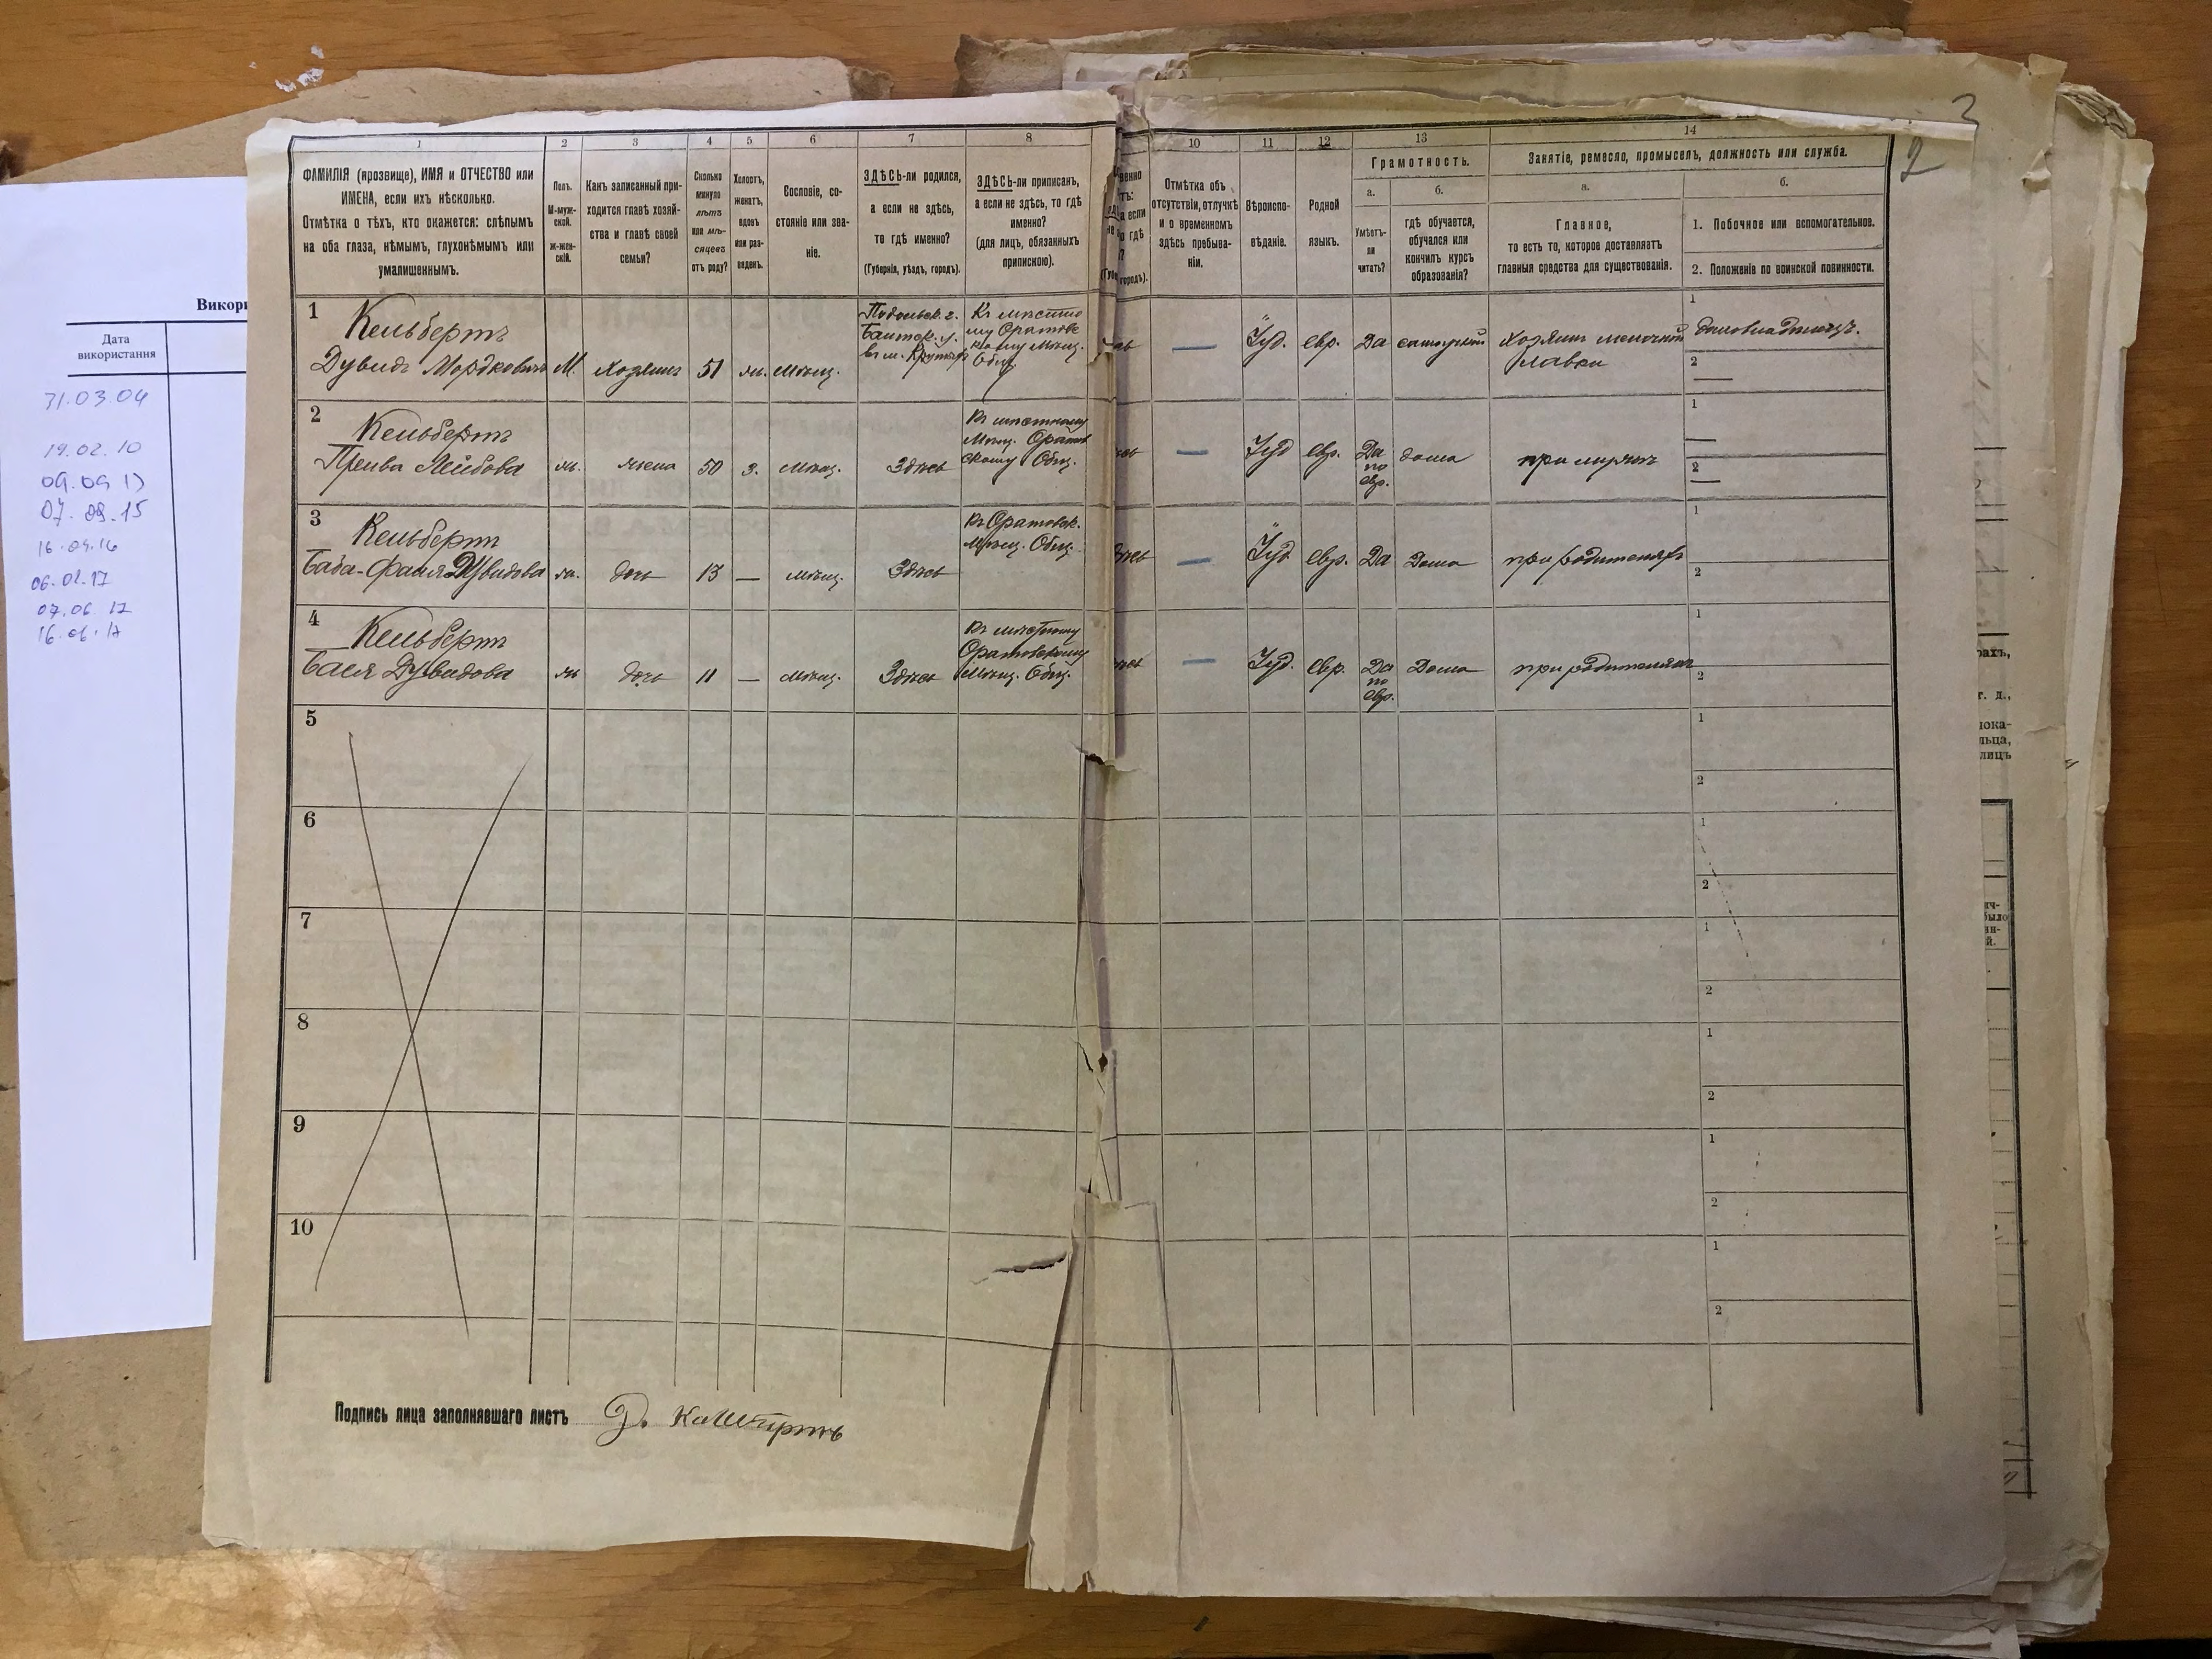 Викори
Дата
використання
31.03.04
19.02.10
09.09 13
07.09.15
16.04.16
06.02.17
07.06.17
16.06.17
1
2
3
4
5
6
7
8
ФАМИЛІЯ (прозвище), ИМЯ и ОТЧЕСТВО или
ИМЕНА, если ихъ нѣсколько.
Отмѣтка о тѣхъ, кто окажется: слѣпымъ
на оба глаза, нѣмымъ, глухонѣмымъ или
умалишеннымъ.
Полъ.
М-муж-
ской.
Ж-жен-
скій.
Какъ записанный при-
ходится главѣ хозяй-
ства и главѣ своей
семьи?
Сколько
минуло
лѣтъ
или мѣ-
сяцевъ
отъ роду?
Холостъ,
женатъ,
вдовъ
или раз-
веденъ.
Сословіе, со-
стояніе или зва-
ніе.
ЗДѢСЬ-ли родился,
а если не здѣсь,
то гдѣ именно?
(Губернія, уѣздъ, городъ).
ЗДѢСЬ-ли приписанъ,
а если не здѣсь, то гдѣ
именно?
(для лицъ, обязанныхъ
припискою).
10
11
12
13
14
Отмѣтка объ
отсутствіи, отлучкѣ
и о временномъ
здѣсь пребыва-
ніи.
Вѣроиспо-
вѣданіе.
Родной
языкъ.
Грамотность.
а.
б.
Умѣетъ-
ли
читать?
гдѣ обучается,
обучался или
кончилъ курсъ
образованія?
Занятіе, ремесло, промыселъ, должность или служба.
а.
б.
Главное,
то есть то, которое доставляетъ
главныя средства для существованія.
1. Побочное или вспомогательное.
2. Положеніе по воинской повинности.
2
1
Кельбертъ
Дувидъ Мордковичъ
М.
хозяинъ
51
ж.
мѣщ.
Подольск. г.
Балтск. у.
въ м.
Іуд.
евр.
Да
Хозяинъ мелочной
лавки
домовладѣлецъ.
1
2
2
Кельбертъ
Лейбова
ж.
жена
50
з.
мѣщ.
Здѣсь
Къ мѣстному
Мѣщ. Оратов
скому Общ.
Іуд
евр.
Да
по
евр.
дома
при мужѣ
1
2
3
Кельбертъ
Дувидова
ж.
дочь
13
—
мѣщ.
Здѣсь
Къ Оратовск.
Мѣщ. Общ.
Іуд
евр.
Да
Дома
при родителяхъ
1
2
4
Кельбертъ
Бася Дувидова
ж
дочь
11
—
мѣщ.
Здѣсь
Къ мѣстному
Оратовскому
Мѣщ. Общ.
Іуд.
евр.
Да
по
евр.
Дома
при родителяхъ
1
2
5
1
2
6
1
2
7
1
2
8
1
2
9
1
2
10
1
2
Подпись лица заполнявшаго листъ